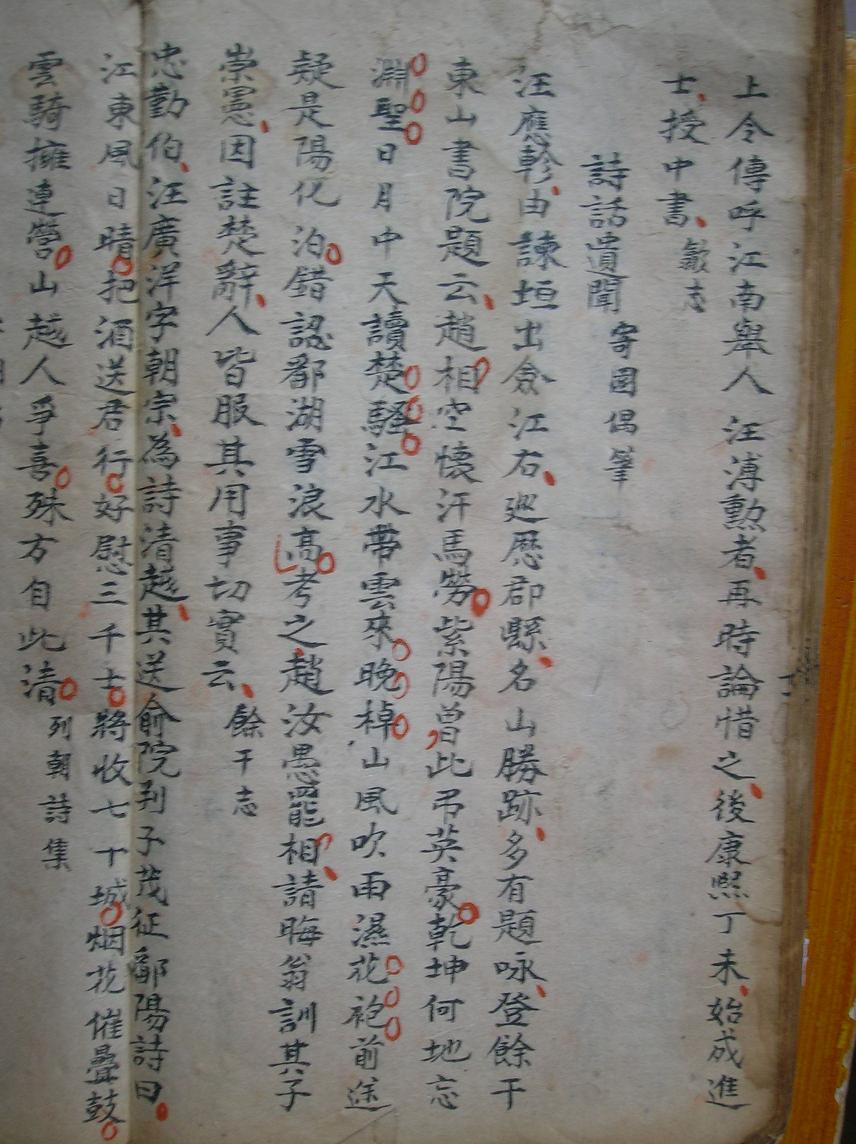 上令傳呼江南舉人汪溥勲者再時論惜之後康熙丁未始成進
士授中書 歙志
詩話遺聞 寄園偶筆
汪應軫由諫垣出僉江右廵歷郡縣名山勝跡多有題咏登餘干
東山書院題云趙相空懷汗馬勞紫陽曽此弔英豪乾坤何地忘
淵聖日月中天讀楚騷江水帶雲來晚棹山風吹雨濕花袍前途
疑是陽化泊錯認鄱湖雪浪高考之趙汝愚罷相請晦翁訓其子
崇憲因註楚辭人皆服其用事切實云 餘干志
忠勤伯汪廣洋字朝宗為詩清越其送俞院判子茂征鄱陽詩曰
江東風日晴把酒送君行好慰三千士將收七十城烟花催疊鼓
雲騎擁連營山越人爭喜殊方自此清 列朝詩集